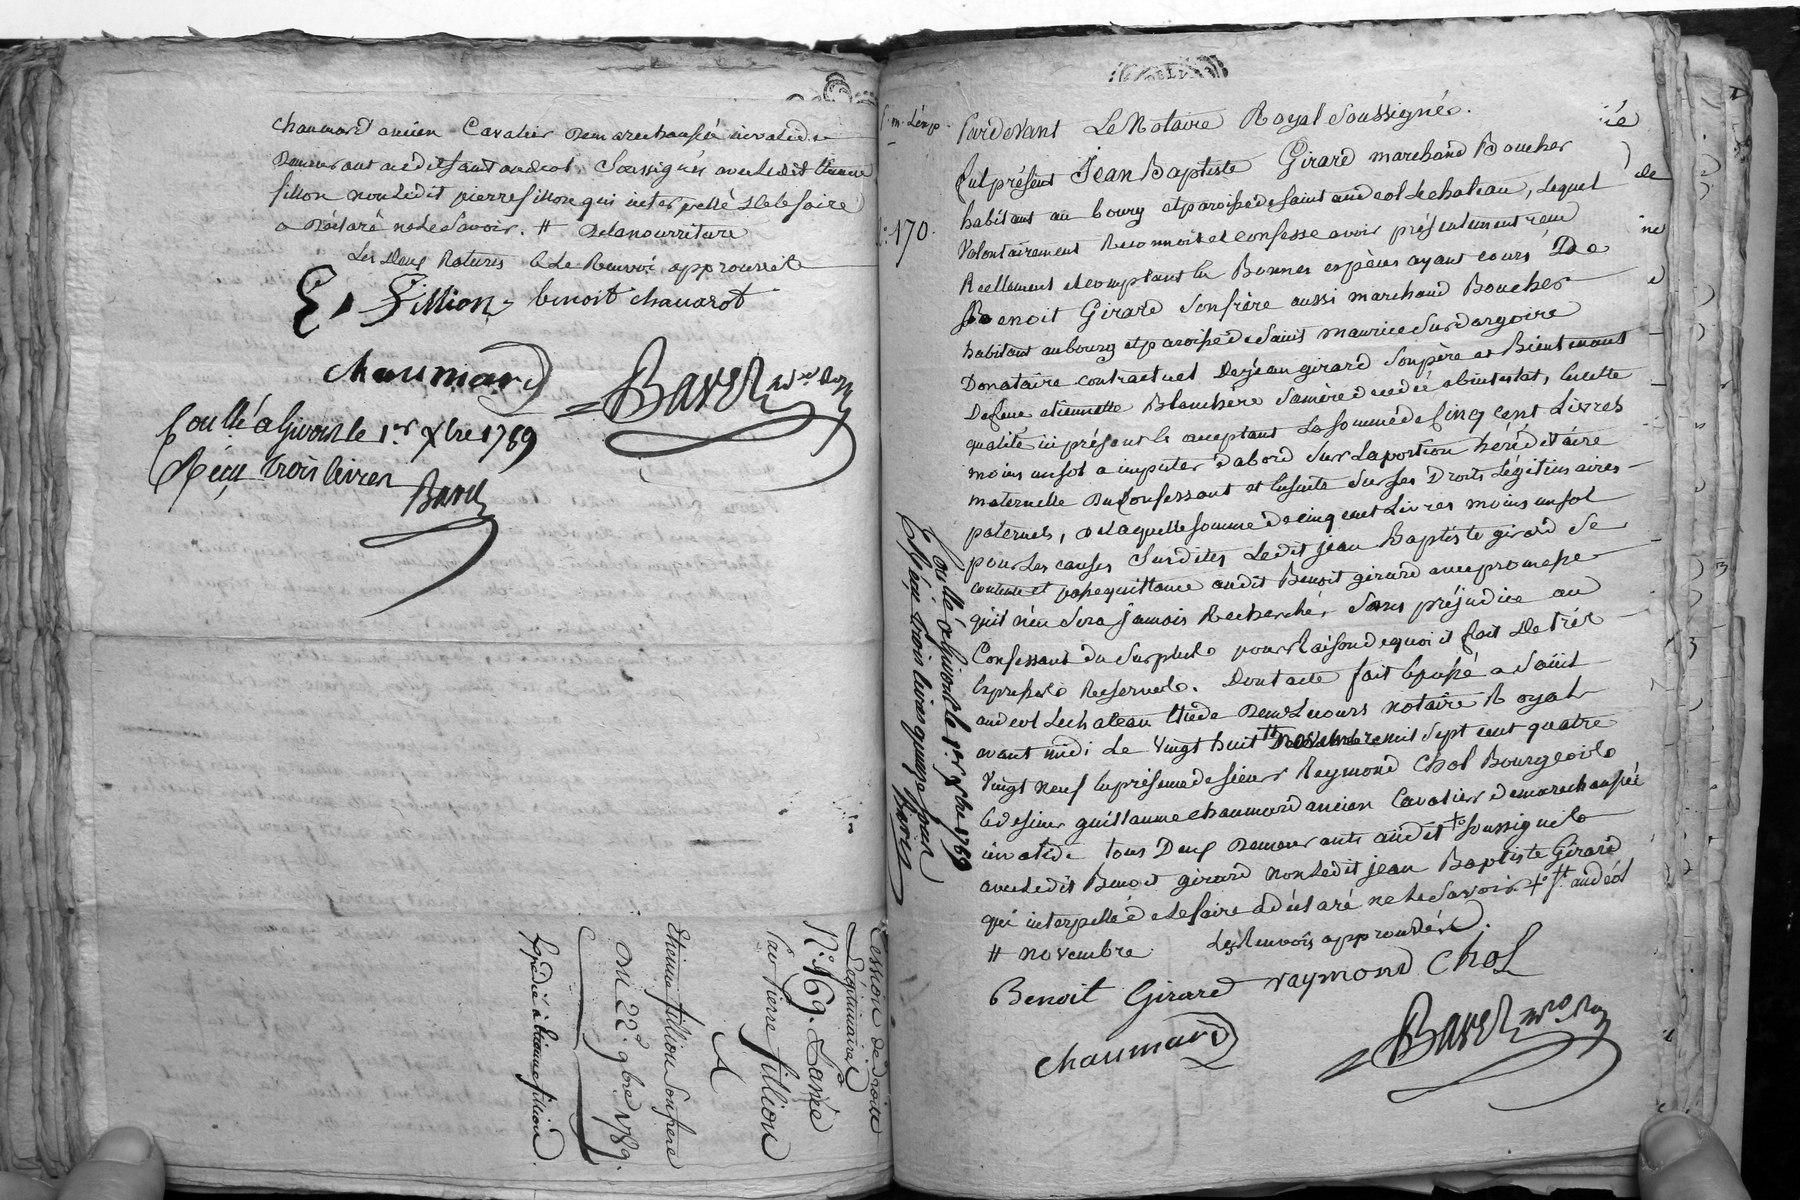 chaumard ancien Cavalier Demarechaussée invalide
Demeurant audit saint andeol Soussignés avec ledit Etienne
fillion non ledit pierre fillion qui interpellé de le faire
a Déclaré ne le Savoir. # De la nourriture
Les Deux Ratures & Le Renvoi approuvés
E. Fillion benoit chavarot
Chaumard Baret nore Roy
Contllé a Givors le 1er Xbre 1789
Reçu trois livres
Baret
Cession de droits
Légitimaires
N° 169. Année
Par Pierre fillion
A
Etienne fillion Son frere
Du 22e 9bre 1789.
Expédié à Etienne fillion.
170.
Pardevant Le Notaire Royal Soussigné.
fut présent Jean Baptiste Girard marchand Boucher
habitant au bourg et paroisse de Saint andeol Le chateau, Lequel
Volontairement Reconnoit et confesse avoir présentement reçu
Reellement et comptant En Bonnes espèces ayant cours De
Benoit Girard Son frère aussi marchand Boucher
habitant au bourg et paroisse de Saint maurice Sur dargoire
Donataire contractuel De jean girard Son père et Bientenant
De feue etiennette Blanchere Sa mère décédée abintestat, En cette
qualité ici présent & acceptant La Somme de Cinq cent Livres
moins un Sol a imputer d'abord Sur La portion héréditaire
maternelle Du Confessant et Ensuite Sur Ses Droits Légitimaires
paternels, De laquelle Somme de cinq cent Livres moins un Sol
pour Les causes Susdites Ledit jean Baptiste girard Se
contente et passe quittance audit Benoit girard avec promesse
qu'il n'en Sera jamais Recherché, Sans préjudice au
Confessant du Surplus pour Raison de quoi il fait De très
Expresses Reserves. Dont acte fait & passé a Saint
andeol Le chateau Etude De me Lenours notaire Royal
avant midi Le Vingt huit # mil Sept cent quatre
Vingt neuf En présence de Sieur Raymond Chol Bourgeois
& de Sieur guillaume chaumard ancien Cavalier de marechaussée
invalide tous Deux Demeurants audit +° Soussignés
avec ledit Benoit girard non Ledit jean Baptiste Girard
qui interpellé de Le faire a déclaré ne Le Savoir. +° St andéol
# novembre. Les Renvois approuvés.
Benoit Girard raymond Chol
Chaumard Baret nore Roy
Contllé a Givors le 1er Xbre 1789
Reçu trois livres quinze sols
Baret